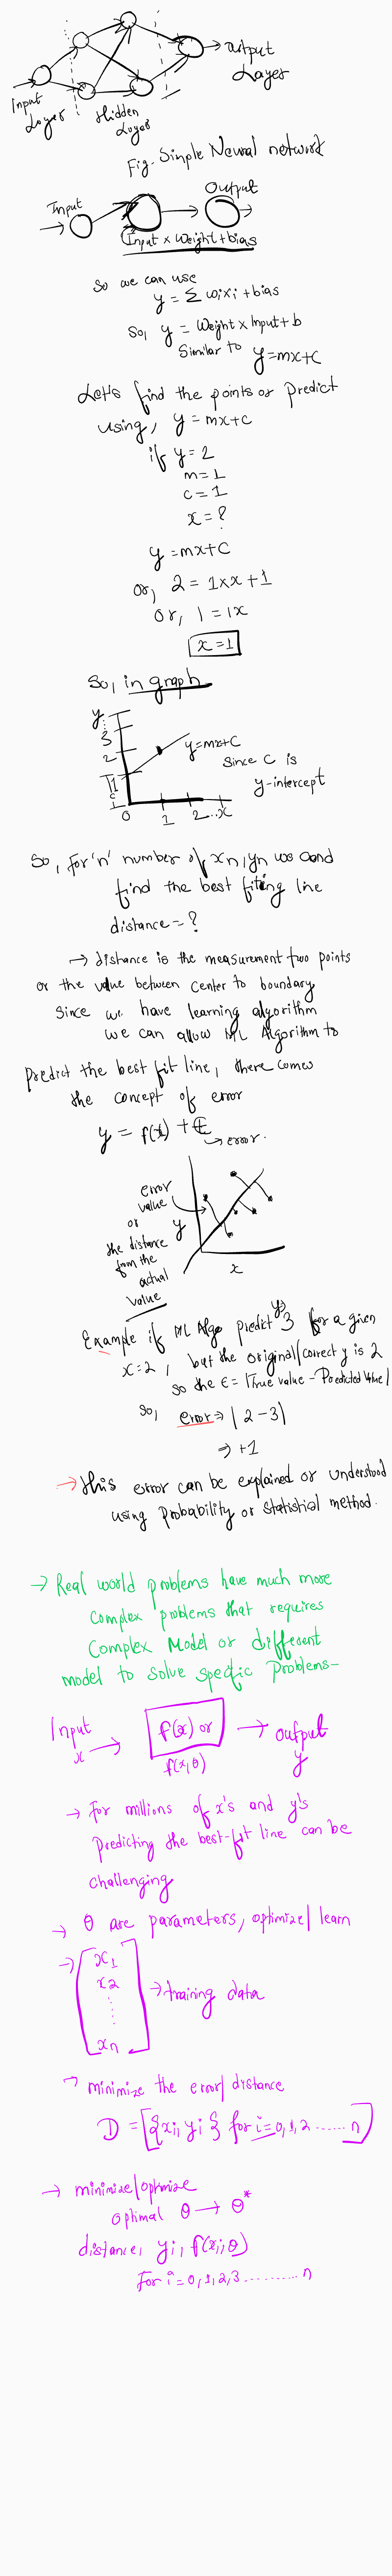 output
Layer
Input
Layer
Hidden
Layer
Fig. Simple Neural network
Input
Output
Input x Weight + bias
So we can use
y = Σ wixi + bias
So, y = Weight x Input + b
Similar to y = mx+c
Let's find the points or predict
using, y = mx+c
if y = 2
m = 1
c = 1
x = ?
y = mx+c
or, 2 = 1xx + 1
or, 1 = 1x
x = 1
So, in graph
y
3
2
1
0
1
2...x
y=mx+c
Since c is
y-intercept
So, for 'n' number of xn, yn we
find the best fiting line
distance = ?
→ distance is the measurement two points
or the value between center to boundary
Since we have learning algorithm
we can allow ML Algorithm to
predict the best fit line, there comes
the concept of error
y = f(x) + ∈
→ error.
error
value
or
the distance
from the
actual
value
y
x
Example if ML Algo predict y 3 for a given
x=2, but the original/correct y is 2
so the ∈ = |True value - Predicted Value|
So, error ⇒ |2-3|
⇒ +1
→ this error can be explained or understood
using probability or statistial method.
→ Real world problems have much more
complex problems that requires
Complex Model or different
model to solve specific Problems-
Input
x →
f(x) or
f(x,θ)
→ output
y
→ for millions of x's and y's
Predicting the best-fit line can be
challenging
→ θ are parameters, optimize/learn
→ [x1
x2
xn] → training data
→ minimize the error/distance
D = [{xi, yi} for i=0,1,2 ...... n]
→ minimize/optimize
optimal θ → θ*
distance, yi, f(xi, θ)
For i = 0,1,2,3 .......... n